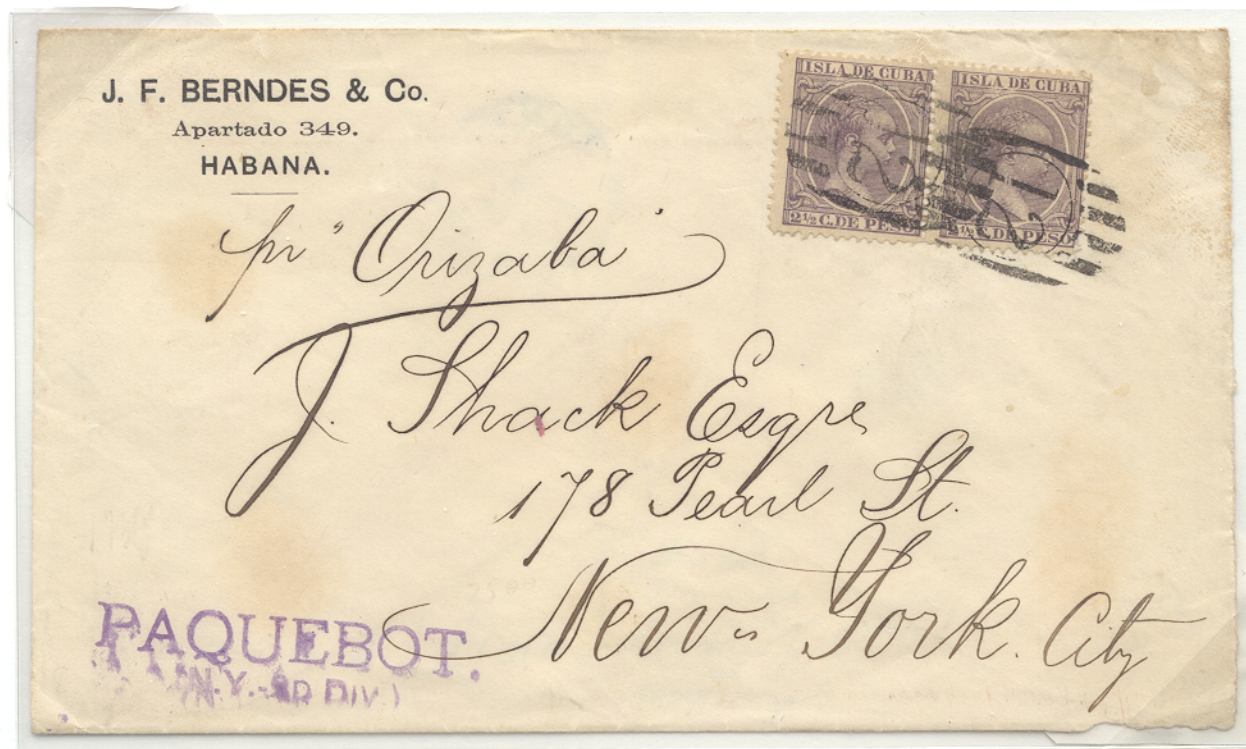 J. F. BERNDES & Co.
Apartado 349.
HABANA.
ISLA DE CUBA
2½ C. DE PESO
ISLA DE CUBA
2½ C. DE PESO
pr "Orizaba"
J. Shack Esqre
178 Pearl St.
New York. City
PAQUEBOT.
(N.Y. 2D DIV.)